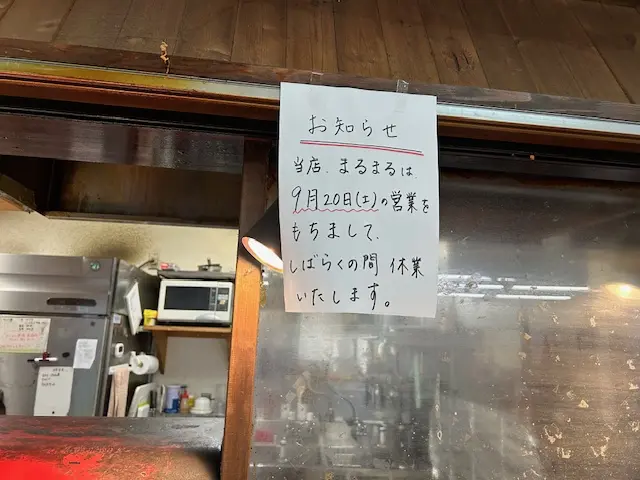 お知らせ
当店、まるまるは、
9月20日(土)の営業を
もちまして、
しばらくの間 休業
いたします。